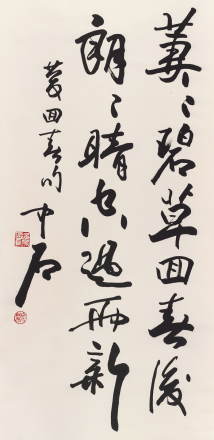 萋〻碧草回春後
朗〻晴空過雨新
回春吟 中石